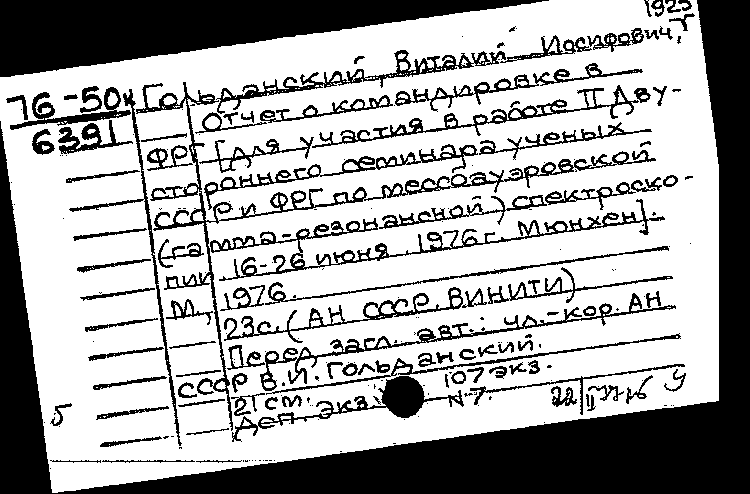 1923
76-50к Гольданский, Виталий Иосифович,
6391 Отчет о командировке в
ФРГ [Для участия в работе II Дву-
стороннего семинара ученых
СССР и ФРГ по мессбауэровской
(гамма-резонансной) спектроско-
пии. 16-26 июня 1976 г. Мюнхен].
М., 1976.
23с. (АН СССР. ВИНИТИ)
Перед загл. авт.: чл.-кор. АН
СССР В.И. Гольданский.
21 см. 107 экз.
Деп. экз. N 7.
22 II
Б